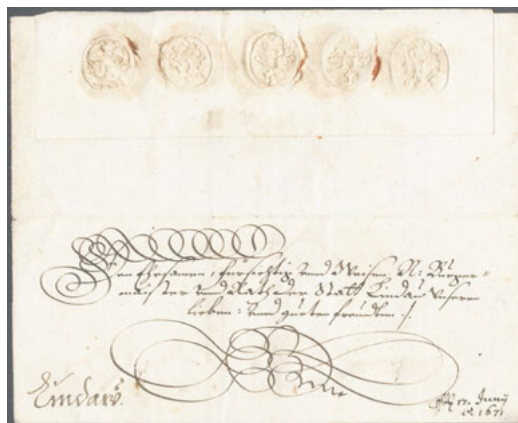 Den Ehrsamen, fürsichtig vnnd Weisen N: Burger-
maister vnnd Rath der Statt Lindaw vnseren
lieben: vnnd gueten freündten ./.
Lindaw.
17. Juny
1671